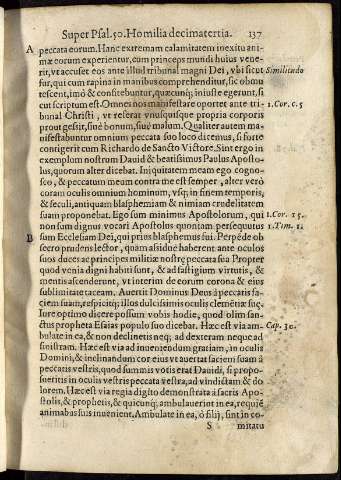 Super Psal. 50. Homilia decimatertia. 137
A peccata eorum. Hanc extremam calamitatem in exitu ani-
mæ eorum experientur, cum princeps mundi huius vene-
rit, vt accuset eos ante illud tribunal magni Dei, vbi sicut Similitudo
fur, qui cum rapina in manibus comprehenditur, sic obmu
tescent, imò & constebuntur, quæcunq; iniuste egerunt, si
cut scriptum est. Omnes nos manifestare oportet ante tri 2. Cor. 5
bunal Christi, vt referat vnusquisque propria corporis
prout gessit, siuè bonum, siuè malum. Qualiter autem ma
nifestabuntur omnium peccata suo loco dicemus, si forte
contigerit cum Richardo de Sancto Victore. Sint ergo in
exemplom nostrum Dauid & beatissimus Paulus Aposto-
lus, quorum alter dicebat. Iniquitatem meam ego cogno-
sco, & peccatum meum contra me est semper, alter verò
coram oculis omnium hominum, vsq; in finem temporis,
& seculi, antiquam blasphemiam & nimiam crudelitatem
suam proponebat. Ego sum minimus Apostolorum, qui 1. Cor. 15.
non sum dignus vocari Apostolus quoniam persequutus 1. Tim. 1.
B sum Ecclesiam Dei, qui prius blasphemus fui. Perpède ob
secro prudens lector, quam assiduè haberent ante oculos
suos duces ac principes militiæ nostrę peccata sua Propter
quod venia digni habiti sunt, & ad fastigium virtutis, &
mentis ascenderunt, vt interim de eorum corona & eius
sublimitate taceam. Auertit Dominus Deus à peccatis fa-
ciem suam, respicitq; illos dulcissimis oculis clemētiæ suę,
Iure optimo dicere possum vobis hodie, quod olim san-
ctus propheta Esaias populo suo dicebat. Hæc est via am- Cap. 30.
bulate in ea, & non declinetis neq; ad dexteram neque ad
sinistram. Hæc est via ad inueniendum gratiam, in oculis
Domini, & inclinandum cor eius vt auertat faciem suam à
peccatis vestris, quod summis votis erat Dauidi, si propo-
sueritis in oculis vestris peccata vestra, ad vindictam & do
lorem. Hæc est via regia digito demonstrata à sacris Apo-
stolis, & prophetis, & quicunq; ambulauerint in ea, requiē
animabus suis inuenient. Ambulate in ea, ò filij, sint in co-
S mitatu